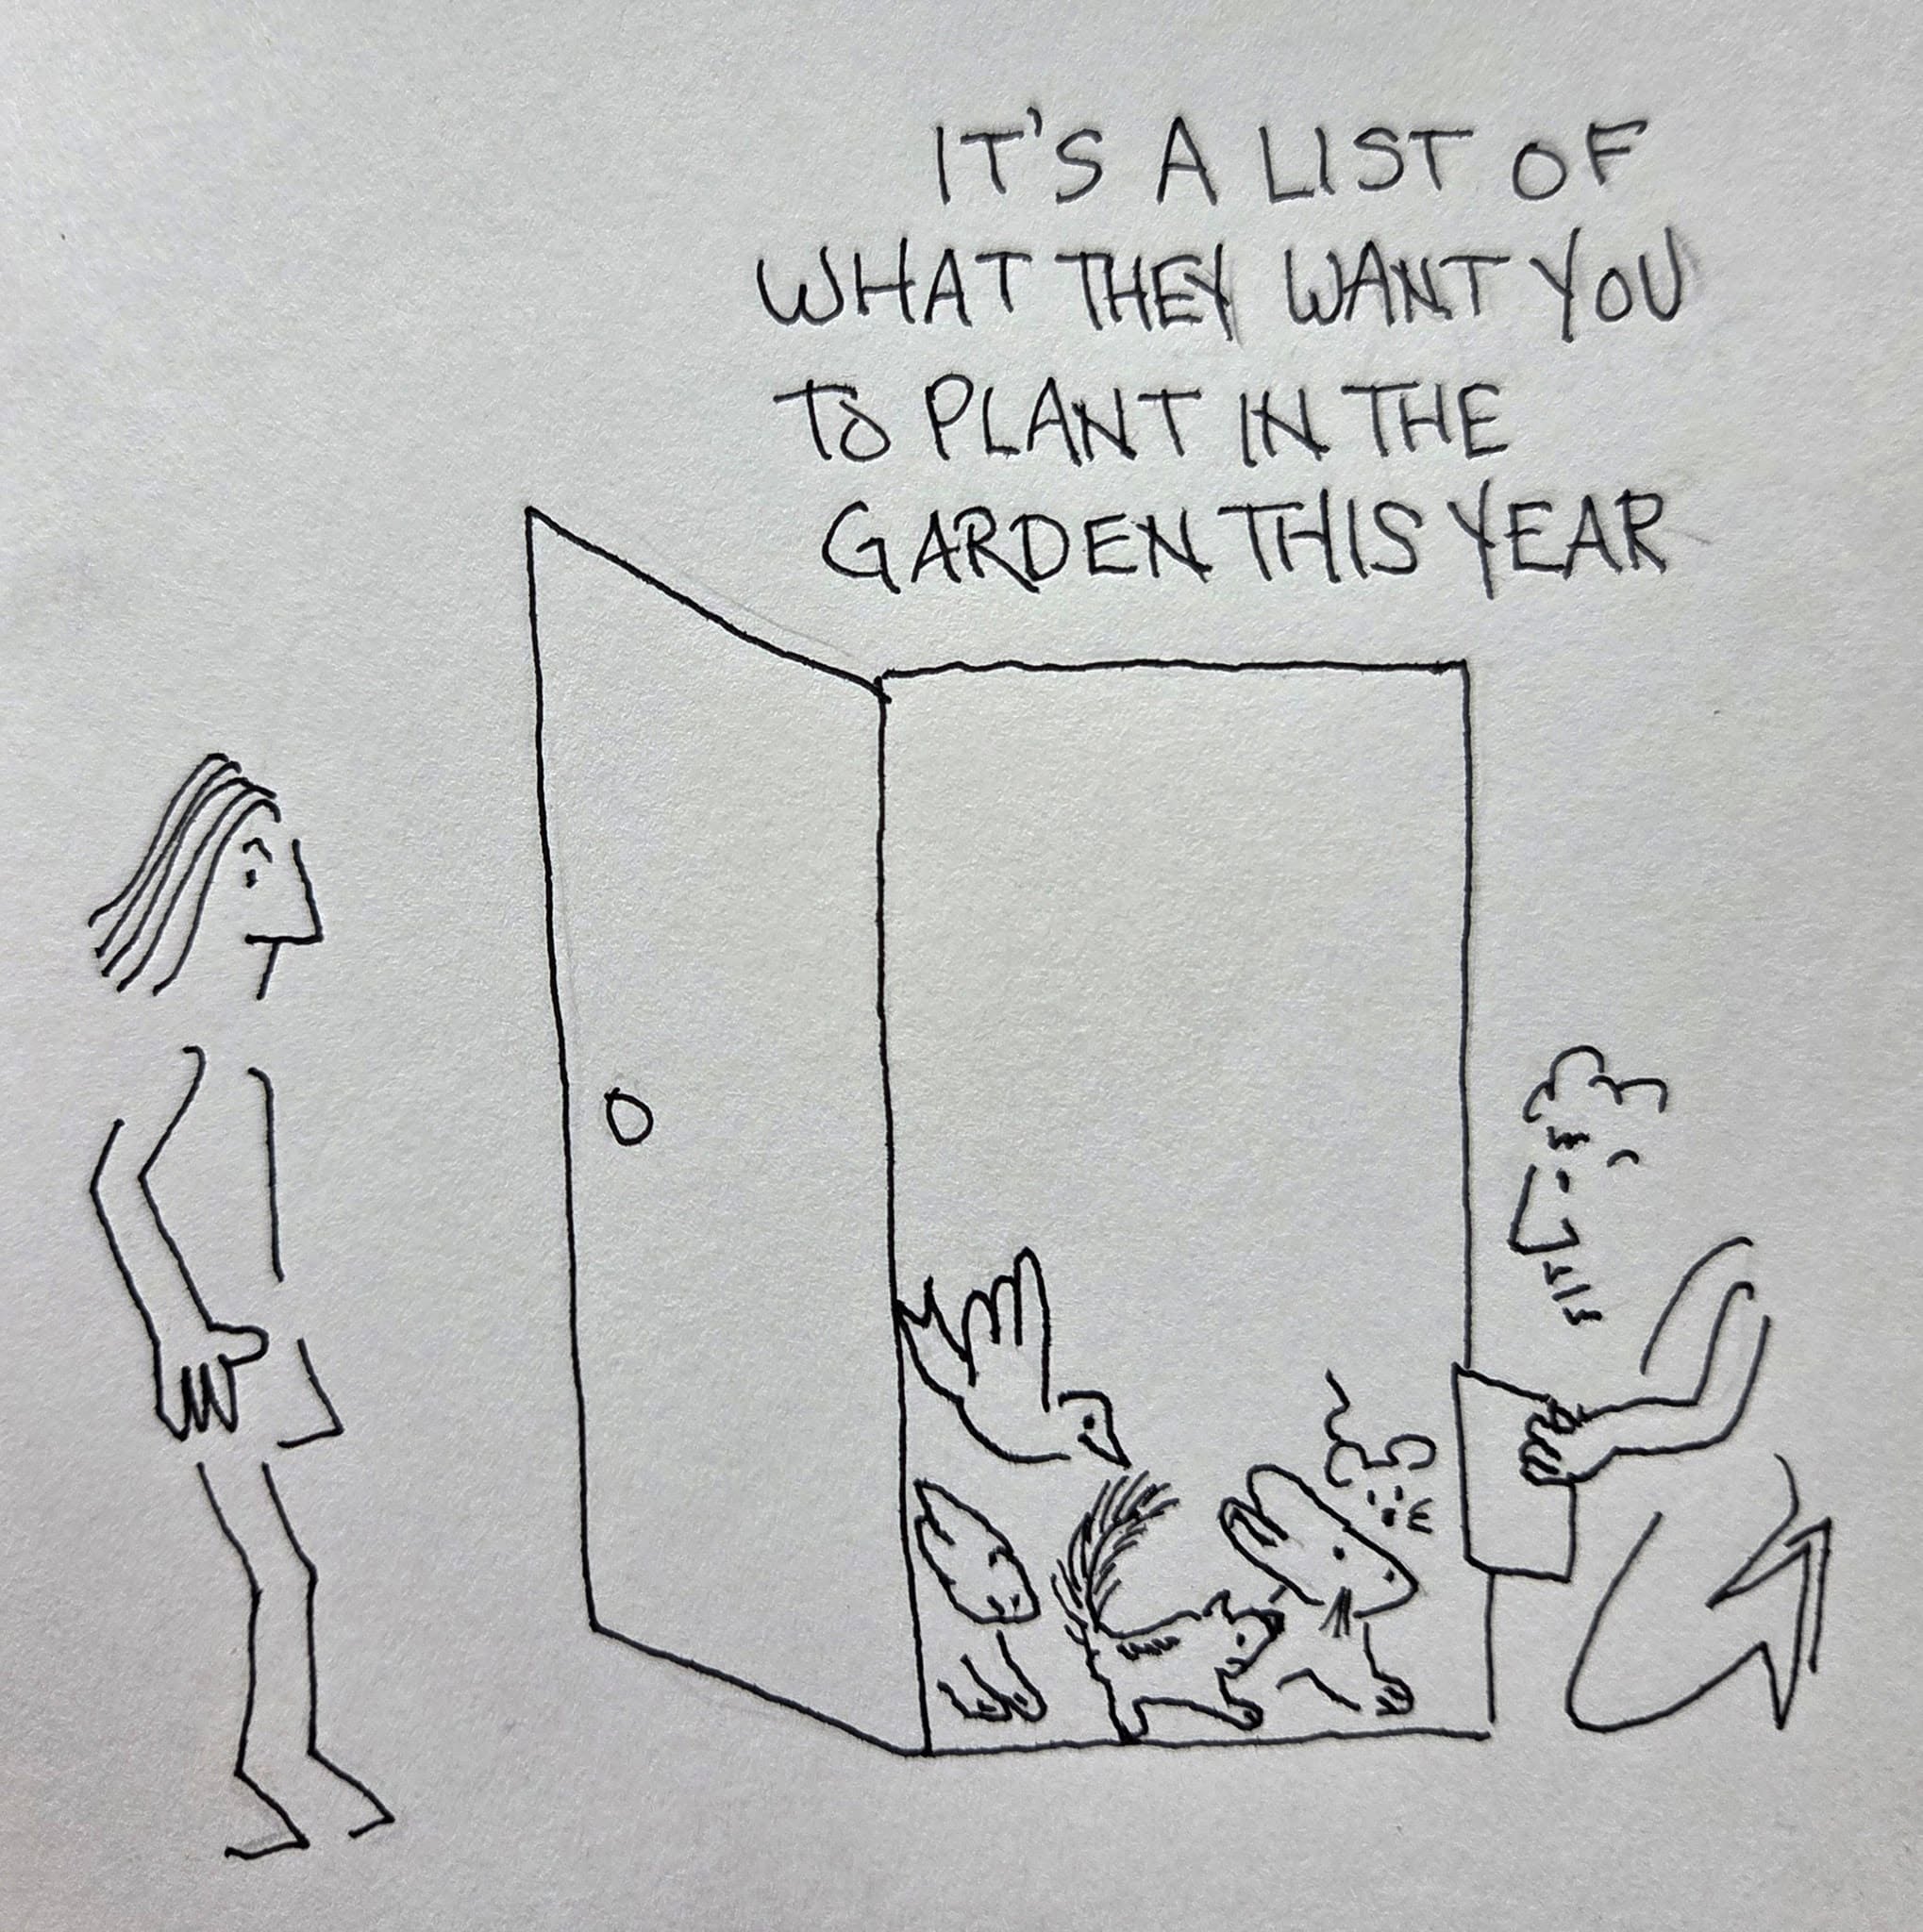 IT'S A LIST OF
WHAT THEY WANT YOU
TO PLANT IN THE
GARDEN THIS YEAR